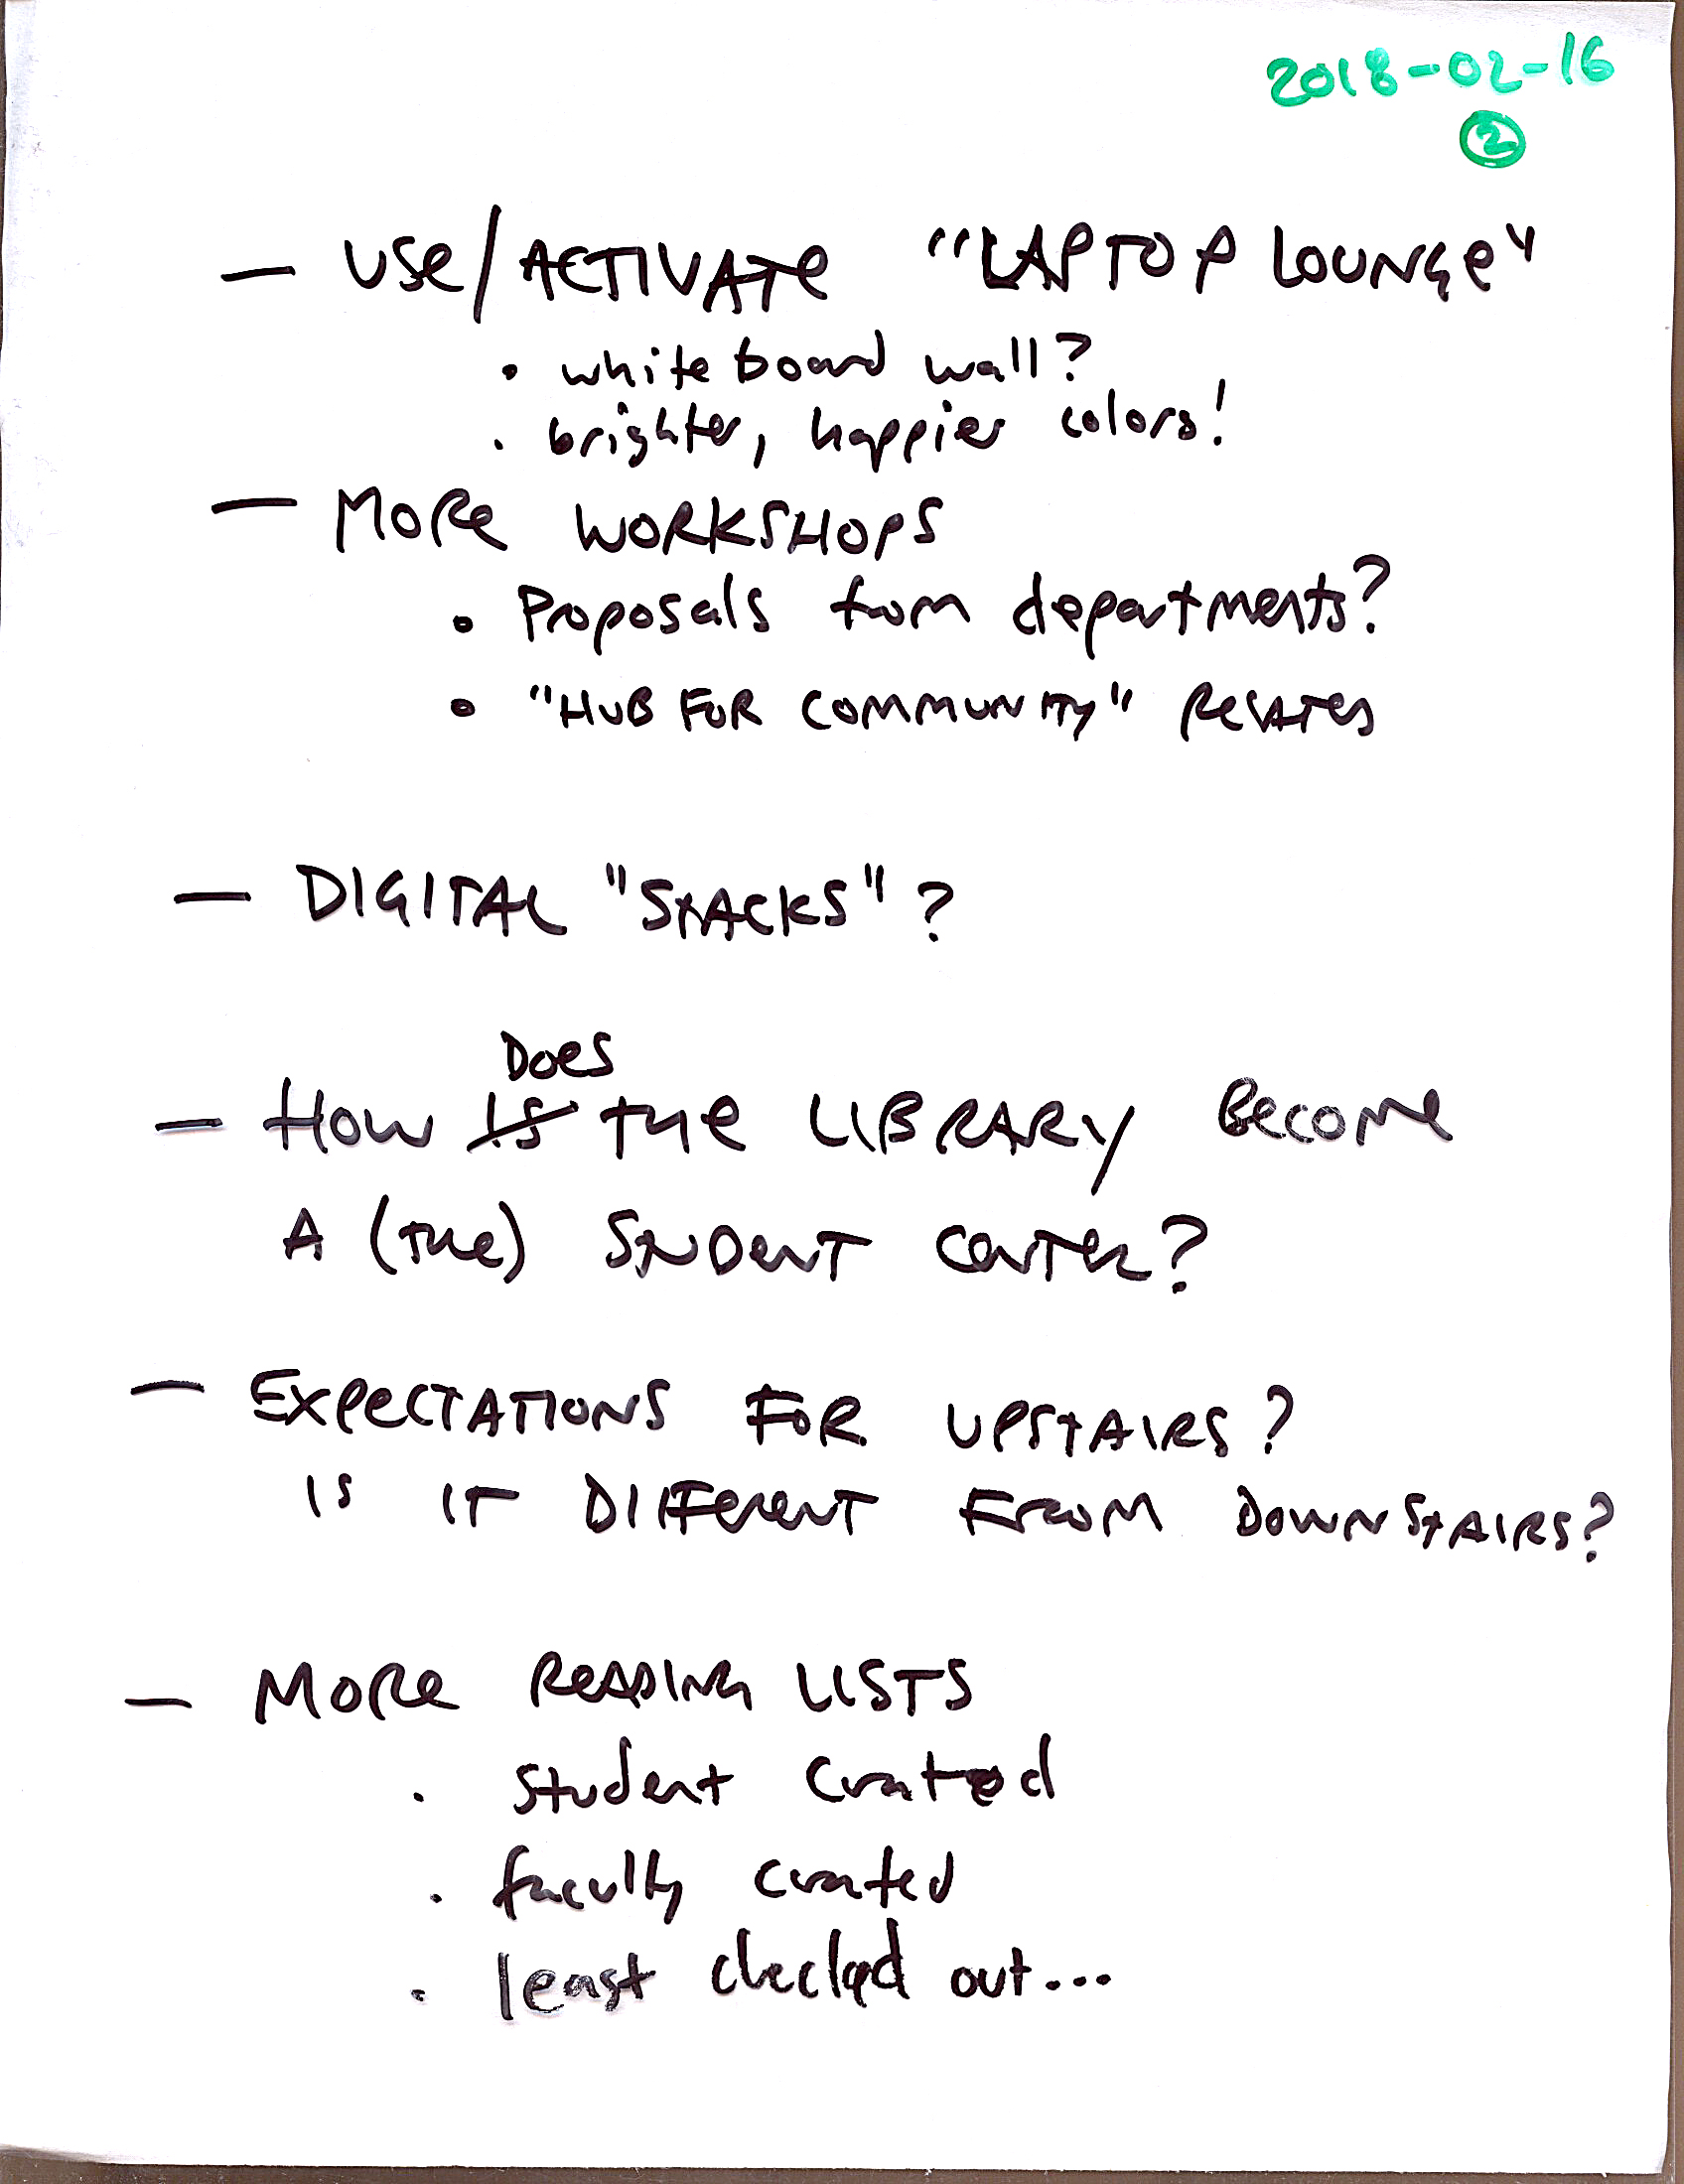 2018-02-16
2
- USE/ACTIVATE "LAPTOP LOUNGE"
• whiteboard wall?
• brighter, happier colors!
- MORE WORKSHOPS
• Proposals from departments?
• "HUB FOR COMMUNITY" RELATES
- DIGITAL "STACKS"?
DOES
- HOW IS THE LIBRARY BECOME
A (THE) STUDENT CENTER?
- EXPECTATIONS FOR UPSTAIRS?
IS IT DIFFERENT FROM DOWNSTAIRS?
- MORE READING LISTS
• student curated
• faculty curated
• least checked out...